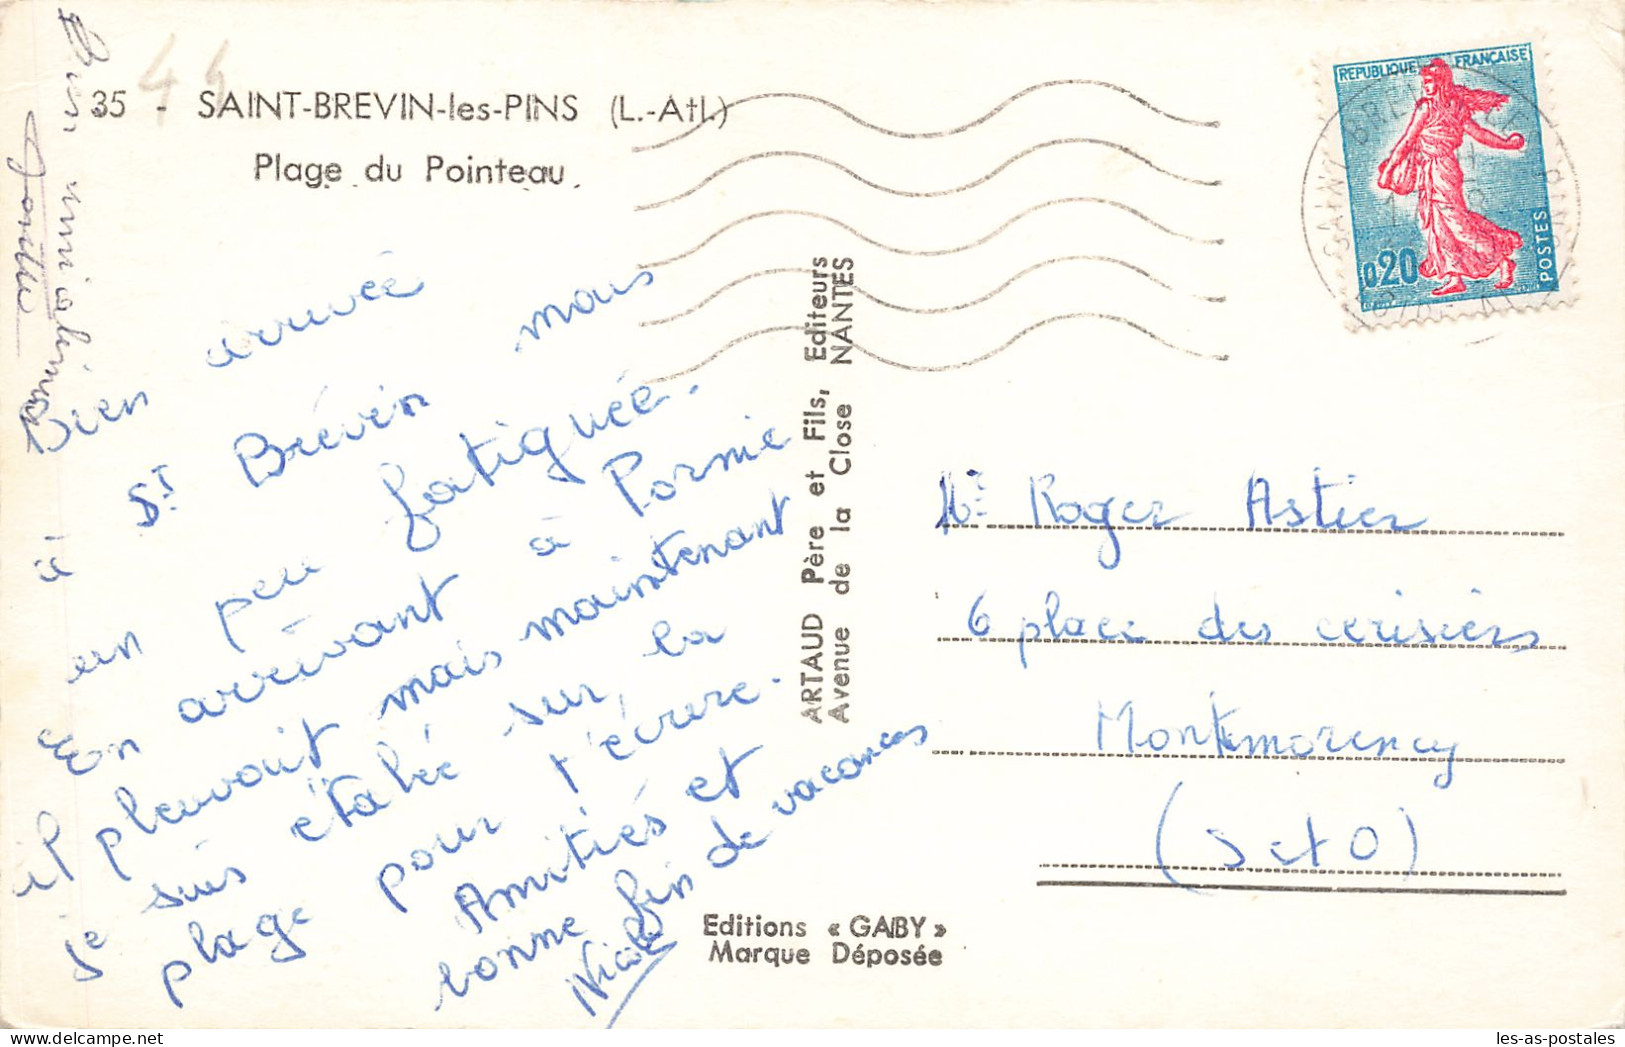 35 - SAINT-BREVIN-les-PINS (L.-Atl.)
Plage du Pointeau
44
Bien arrivée
à St Brévin mais
un peu fatiguée.
En arrivant à Pornic
il pleuvait mais maintenant
je suis étalée sur la
plage pour t'écrire.
Amitiés et
bonne fin de vacances
Nicole
ARTAUD Père et Fils, Editeurs
Avenue de la Close NANTES
Editions « GABY »
Marque Déposée
REPUBLIQUE FRANÇAISE
0,20
POSTES
SAINT BREVIN
Mr Roger Astier
6 place des cerisiers
Montmorency
(S et O)
les-as-postales